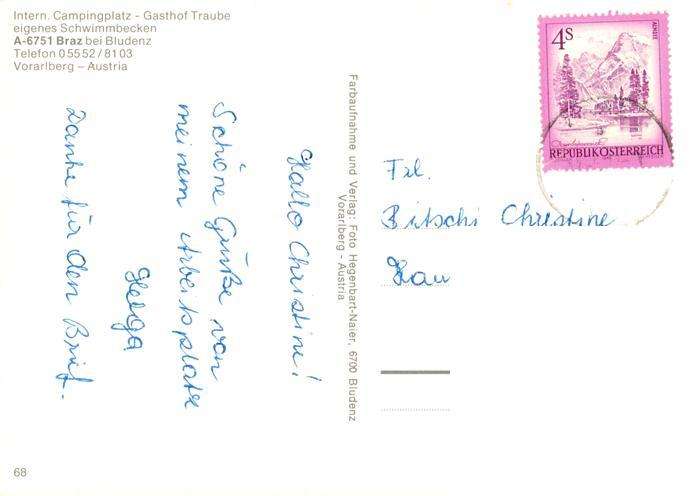 Intern. Campingplatz - Gasthof Traube
eigenes Schwimmbecken
A-6751 Braz bei Bludenz
Telefon 0 55 52 / 81 03
Vorarlberg - Austria
Hallo Christine!
Schöne Grüße von
meinem Arbeitsplatz
Helga
Danke für den Brief.
Farbaufnahme und Verlag: Foto Hegenbart-Naier, 6700 Bludenz
Vorarlberg - Austria
4S
REPUBLIK ÖSTERREICH
Frl.
Bitschi Christine
68